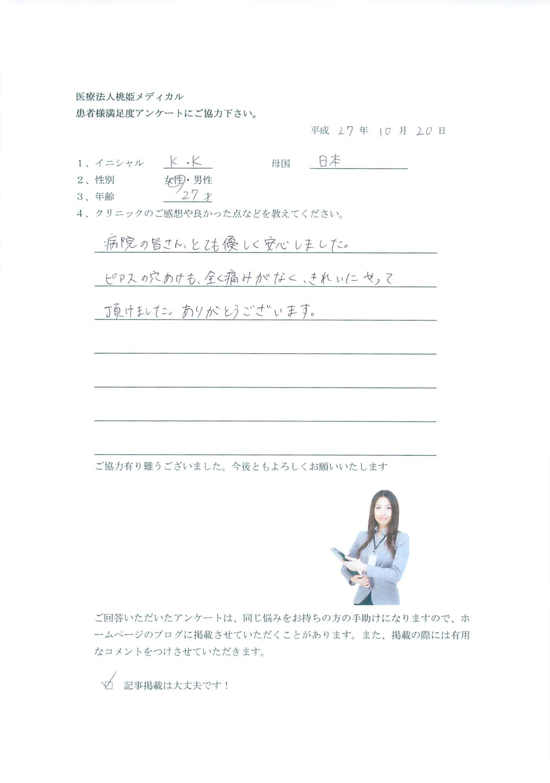 医療法人桃姫メディカル
患者様満足度アンケートにご協力下さい。
平成 27 年 10 月 20 日
1、イニシャル K.K 母国 日本
2、性別 女性・男性
3、年齢 27才
4、クリニックのご感想や良かった点などを教えてください。
病院の皆さん、とても優しく安心しました。
ピアスの穴あけも、全く痛みがなく、きれいにやって
頂けました。ありがとうございます。
ご協力有り難うございました。今後ともよろしくお願いいたします
ご回答いただいたアンケートは、同じ悩みをお持ちの方の手助けになりますので、ホ
ームページのブログに掲載させていただくことがあります。また、掲載の際には有用
なコメントをつけさせていただきます。
☑ 記事掲載は大丈夫です！